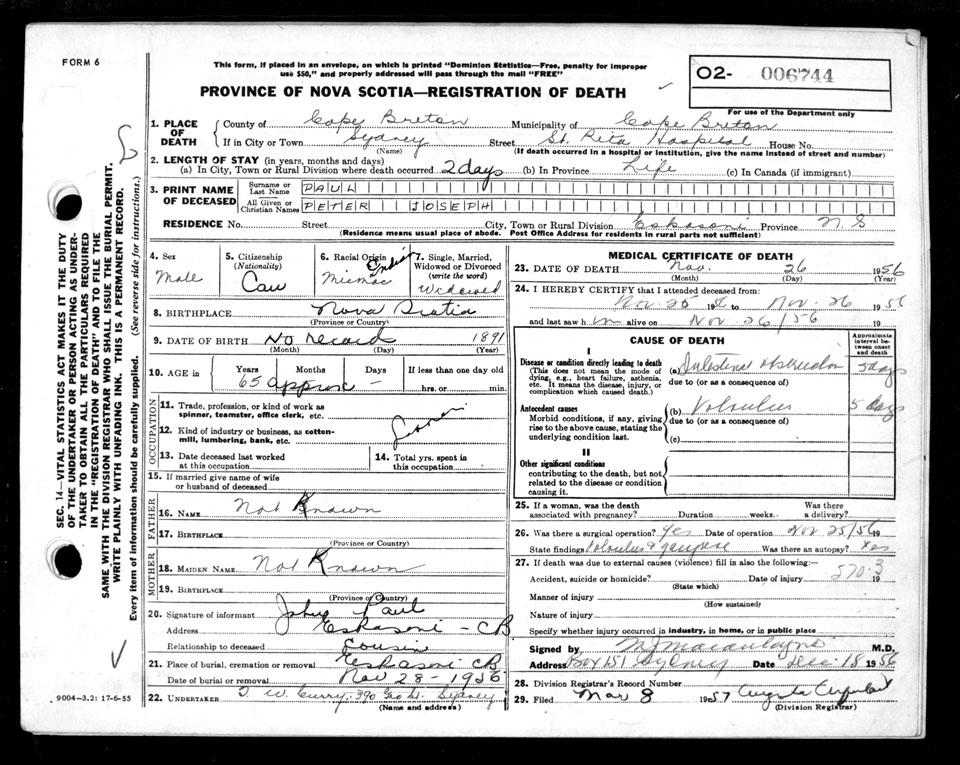 FORM 6
This form, if placed in an envelope, on which is printed "Dominion Statistics—Free, penalty for improper
use $50," and properly addressed will pass through the mail "FREE"
O2- 006744
PROVINCE OF NOVA SCOTIA—REGISTRATION OF DEATH
For use of the Department only
1. PLACE OF DEATH County of Cape Breton Municipality of Cape Breton
If in City or Town Sydney Street St. Rita Hospital House No.
(Name) (If death occurred in a hospital or institution, give the name instead of street and number)
2. LENGTH OF STAY (in years, months and days)
(a) In City, Town or Rural Division where death occurred 2 days (b) In Province Life (c) In Canada (if immigrant)
3. PRINT NAME OF DECEASED Surname or Last Name PAUL
All Given or Christian Names PETER JOSEPH
RESIDENCE No. Street City, Town or Rural Division Eskasoni Province N.S
(Residence means usual place of abode. Post Office Address for residents in rural parts not sufficient)
4. Sex Male
5. Citizenship (Nationality) Can
6. Racial Origin Micmac Indian
7. Single, Married, Widowed or Divorced (write the word) Widowed
8. BIRTHPLACE Nova Scotia
(Province or Country)
9. DATE OF BIRTH No record 1891
(Month) (Day) (Year)
10. AGE in Years Months Days If less than one day old
65 approx - hrs. or min.
OCCUPATION
11. Trade, profession, or kind of work as
spinner, teamster, office clerk, etc.
12. Kind of industry or business, as cotton-
mill, lumbering, bank, etc.
13. Date deceased last worked
at this occupation
14. Total yrs. spent in
this occupation
15. If married give name of wife
or husband of deceased
FATHER
16. NAME Not Known
17. BIRTHPLACE
(Province or Country)
MOTHER
18. MAIDEN NAME Not Known
19. BIRTHPLACE
(Province or Country)
20. Signature of informant John Paul
Address Eskasoni - CB
Relationship to deceased Cousin
21. Place of burial, cremation or removal Eskasoni CB
Date of burial or removal Nov 28 - 1956
22. UNDERTAKER T. W. Curry, 390 Geo St. Sydney
(Name and address)
MEDICAL CERTIFICATE OF DEATH
23. DATE OF DEATH Nov. 26 1956
(Month) (Day)
24. I HEREBY CERTIFY that I attended deceased from:
Nov. 25 1956 to Nov. 26 1956
and last saw him alive on Nov 26/56 19
CAUSE OF DEATH
Approximate interval between onset and death
I
Disease or condition directly leading to death
(This does not mean the mode of
dying, e.g., heart failure, asthenia,
etc. It means the disease, injury, or
complication which caused death.)
(a) Intestine obstruction 5 days
due to (or as a consequence of)
Antecedent causes
Morbid conditions, if any, giving
rise to the above cause, stating the
underlying condition last.
(b) Volvulus 5 days
due to (or as a consequence of)
(c)
II
Other significant conditions
contributing to the death, but not
related to the disease or condition
causing it.
25. If a woman, was the death
associated with pregnancy? Duration weeks. Was there a delivery?
26. Was there a surgical operation? Yes Date of operation Nov 25/56 19
State findings Volvulus & Was there an autopsy? Yes
27. If death was due to external causes (violence) fill in also the following:—
570.3
Accident, suicide or homicide? Date of injury 19
(State which)
Manner of injury
(How sustained)
Nature of injury
Specify whether injury occurred in industry, in home, or in public place
Signed by M.D.
Address Box 151 Sydney Date Dec 18 1956
28. Division Registrar's Record Number
29. Filed Mar 8 1957
(Division Registrar)
SEC. 14—VITAL STATISTICS ACT MAKES IT THE DUTY
OF THE UNDERTAKER OR PERSON ACTING AS UNDER-
TAKER TO OBTAIN ALL THE PARTICULARS REQUIRED
IN THE "REGISTRATION OF DEATH" AND TO FILE THE
SAME WITH THE DIVISION REGISTRAR WHO SHALL ISSUE THE BURIAL PERMIT.
WRITE PLAINLY WITH UNFADING INK. THIS IS A PERMANENT RECORD.
Every item of information should be carefully supplied. (See reverse side for instructions.)
9004-3.2: 17-6-55